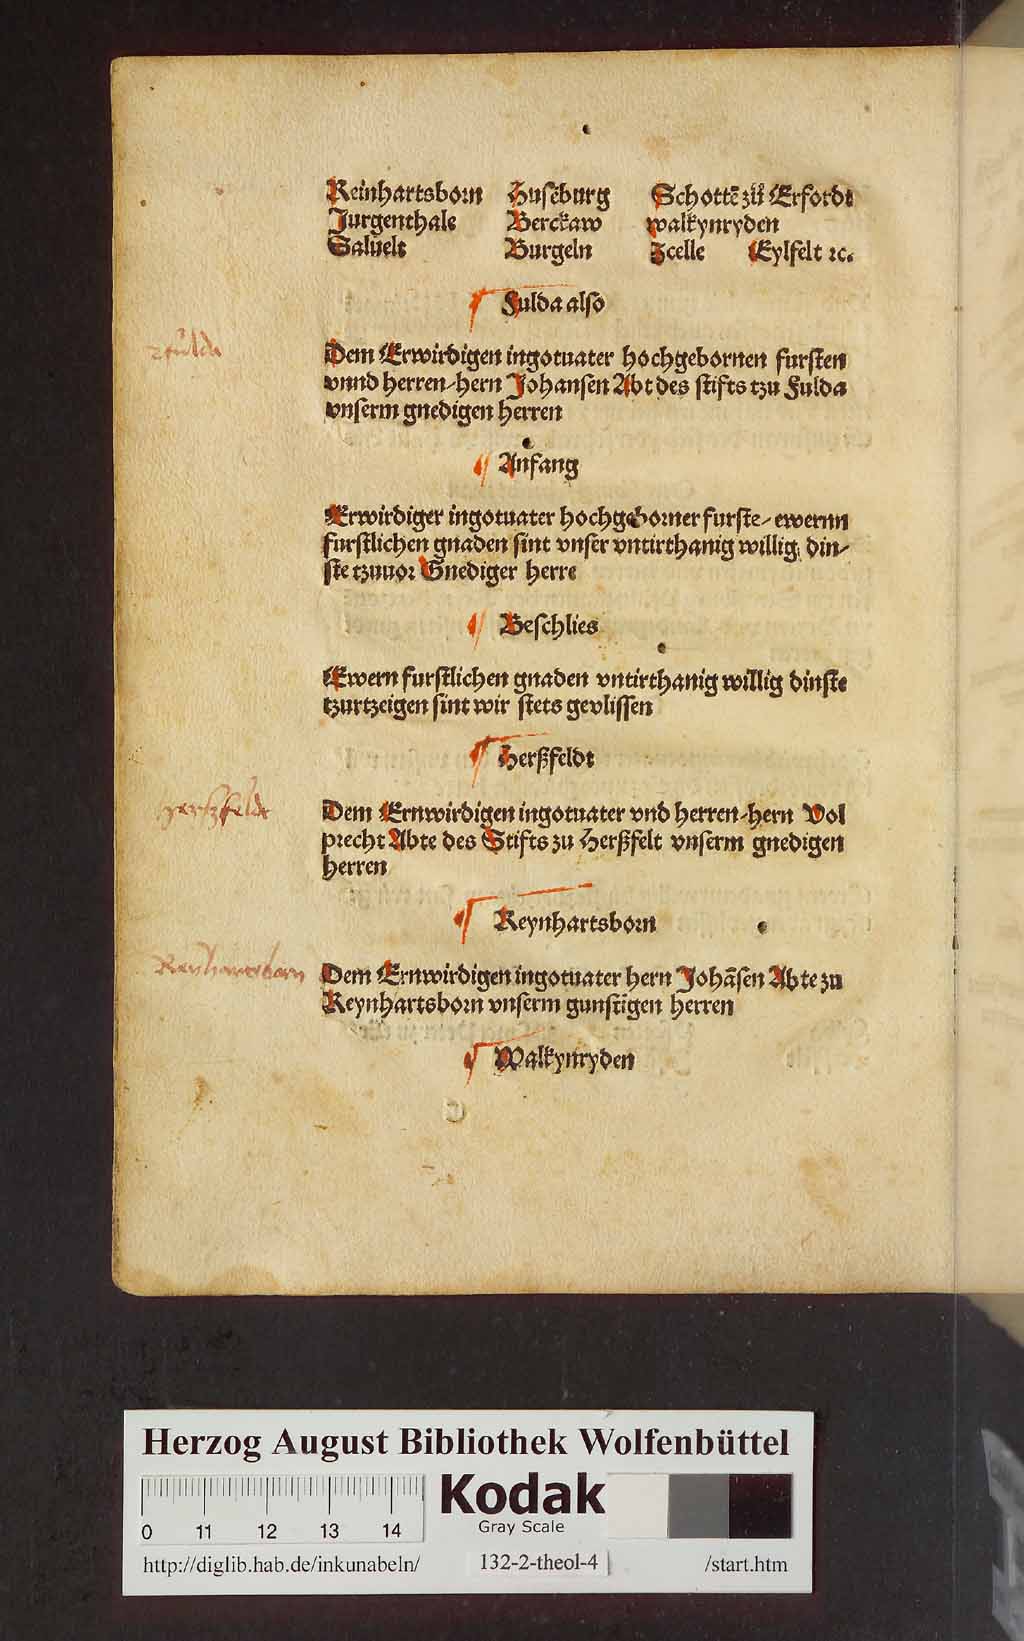 Reinhartsborn Husēburg Schottē zu Erfordt
Jurgenthale Berckaw walkynryden
Salvelt Burgeln Icelle Eylfelt ꝛc.
Fulda also
Fulda
Dem Erwirdigen ingotuater hochgebornen fursten
vnnd herren/hern Johansen Abt des stifts tzu Fulda
vnserm gnedigen herren
Anfang
Erwirdiger ingotuater hochgeborner furste/ ewernn
furstlichen gnaden sint vnser vntirthanig willig din/
ste tzuuor Gnediger herre
Beschlies
Ewern furstlichen gnaden vntirthanig willig dinste
tzurtzeigen sint wir stets gevlissen
Herßfeldt
Herßfelde
Dem Ernwirdigen ingotuater vnd herren/hern Vol
precht Abte des Stifts zu Herßfelt vnserm gnedigen
herren
Reynhartsborn
Reynhartsborn
Dem Ernwirdigen ingotuater hern Johāsen Abte zu
Reynhartsborn vnserm gunstigen herren
Walkynryden
Herzog August Bibliothek Wolfenbüttel
Kodak
Gray Scale
0 11 12 13 14
http://diglib.hab.de/inkunabeln/ 132-2-theol-4 /start.htm